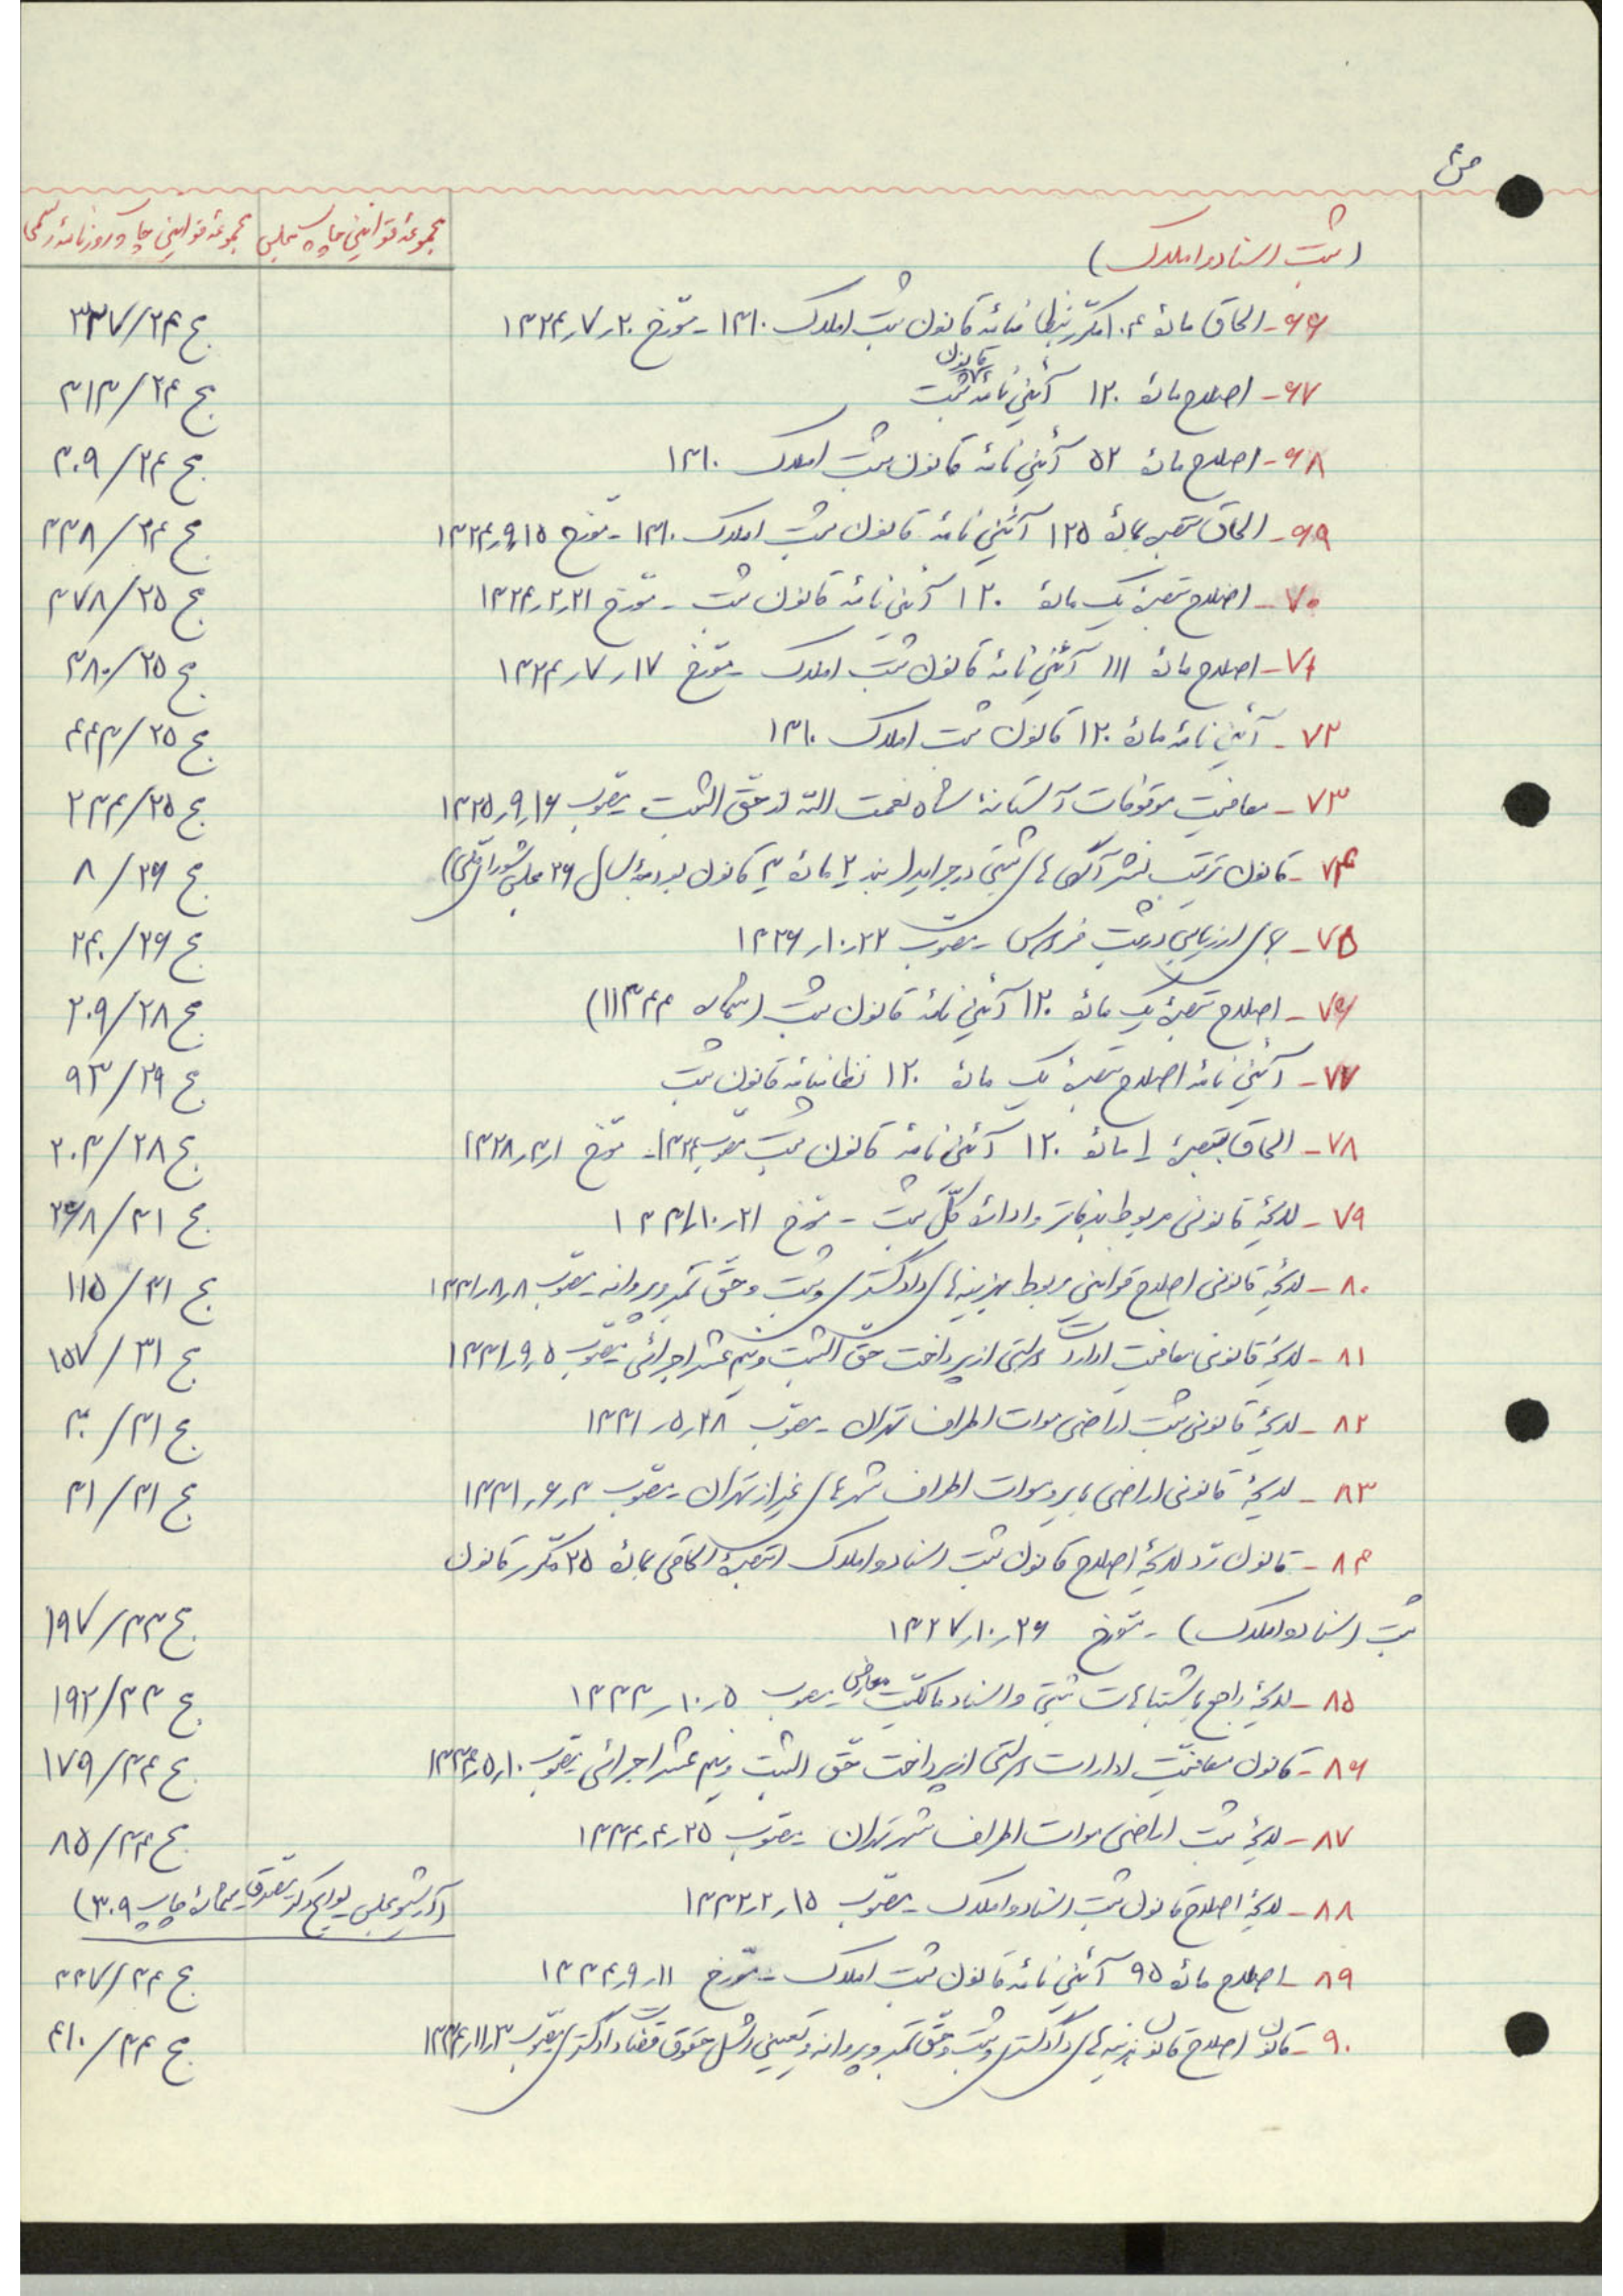 ص
(ثبت اسناد و املاک)
مجموعهٔ قوانین چاپ مجلس
مجموعهٔ قوانین چاپ روزنامهٔ رسمی
۶۶- الحاق مادهٔ ۱۰۴ مکرّر بنظامنامهٔ قانون ثبت املاک ۱۳۱۰ - مورّخ ۱۳۲۴ر۷ر۲۰ ج ۲۴/۳۳۷
۶۷- اصلاح مادهٔ ۱۲۰ آئین نامهٔ قانون ثبت ج ۲۴/۳۱۳
۶۸- اصلاح مادهٔ ۵۲ آئین نامهٔ قانون ثبت املاک ۱۳۱۰ ج ۲۴/۳۰۹
۶۹- الحاق تبصره بمادهٔ ۱۲۵ آئین نامهٔ قانون ثبت املاک ۱۳۱۰ - مورّخ ۱۳۲۴ر۹ر۱۵ ج ۲۴/۳۳۸
۷۰- اصلاح تبصرهٔ یک مادهٔ ۱۲۰ آئین نامهٔ قانون ثبت - مورّخ ۱۳۲۴ر۲ر۲۱ ج ۲۵/۳۷۸
۷۱- اصلاح مادهٔ ۱۱۱ آئین نامهٔ قانون ثبت املاک - مورّخ ۱۳۲۴ر۷ر۱۷ ج ۲۵/۳۸۰
۷۲- آئین نامهٔ مادهٔ ۱۲۰ قانون ثبت املاک ۱۳۱۰ ج ۲۵/۴۴۳
۷۳- معافیت موقوفات آستانهٔ شاه نعمت الله از حقّ الثبت - مصوّب ۱۳۲۵ر۹ر۱۶ ج ۲۵/۲۳۴
۷۴- قانون ترتیب نشر آگهی های ثبتی در جراید (بند ۲ مادهٔ ۳ قانون بودجهٔ سال ۲۶ مجلس شورای ملّی) ج ۲۶/۸
۷۵- ارزیابی در ثبت - مصوّب ۱۳۲۶ر۱۰ر۲۲ ج ۲۶/۲۴۰
۷۶- اصلاح تبصرهٔ یک مادهٔ ۱۲۰ آئین نامهٔ قانون ثبت (شماره ۱۱۳۴۴) ج ۲۸/۲۰۹
۷۷- آئین نامهٔ اصلاح تبصرهٔ یک مادهٔ ۱۲۰ نظامنامهٔ قانون ثبت ج ۲۹/۹۳
۷۸- الحاق بتبصرهٔ ۱ مادهٔ ۱۲۰ آئین نامهٔ قانون ثبت مصوّب ۱۳۲۴ - مورّخ ۱۳۲۸ر۳ر۱ ج ۲۸/۲۰۳
۷۹- لایحهٔ قانونی مربوط بدفاتر و ادارهٔ کلّ ثبت - مورّخ ۱۳۳۱ر۱۰ر۲۱ ج ۳۱/۲۶۸
۸۰- لایحهٔ قانونی اصلاح قوانین مربوط بهزینه های دادگستری و ثبت و حقّ تمبر و پروانه - مصوّب ۱۳۳۱ر۸ر۸ ج ۳۱/۱۱۵
۸۱- لایحهٔ قانونی معافیت ادارات دولتی از پرداخت حقّ الثبت و نیم عشر اجرائی - مصوّب ۱۳۳۱ر۹ر۵ ج ۳۱/۱۵۷
۸۲- لایحهٔ قانونی ثبت اراضی موات اطراف تهران - مصوّب ۱۳۳۱ر۵ر۲۸ ج ۳۱/۳۰
۸۳- لایحهٔ قانونی اراضی بایر و موات اطراف شهرهای غیر از تهران - مصوّب ۱۳۳۱ر۶ر۳ ج ۳۱/۳۱
۸۴- قانون ردّ لایحهٔ اصلاح قانون ثبت اسناد و املاک (تبصرهٔ الحاقی بمادهٔ ۲۵ مکرّر قانون
ثبت اسناد و املاک) - مورّخ ۱۳۲۷ر۱۰ر۲۶ ج ۳۳/۱۹۷
۸۵- لایحهٔ راجع باشتباهات ثبتی و اسناد مالکیّت معارض - مصوب ۱۳۳۳ر۱۰ر۵ ج ۳۳/۱۹۲
۸۶- قانون معافیّت ادارات دولتی از پرداخت حقّ الثبت و نیم عشر اجرائی - مصوّب ۱۳۳۴ر۵ر۱۰ ج ۳۴/۱۷۹
۸۷- لایحهٔ ثبت اراضی موات اطراف شهر تهران - مصوّب ۱۳۳۴ر۴ر۲۵ ج ۳۴/۸۵
۸۸- لایحهٔ اصلاح قانون ثبت اسناد و املاک - مصوّب ۱۳۳۲ر۲ر۱۵ (آرشیو مجلس لوایح دکتر مصدّق شمارهٔ چاپ ۳۰۹)
۸۹- اصلاح مادهٔ ۹۵ آئین نامهٔ قانون ثبت املاک - مورّخ ۱۳۳۴ر۹ر۱۱ ج ۳۴/۳۳۷
۹۰- قانون اصلاح قانون هزینه های دادگستری و ثبت و حقّ تمبر و پروانه و تعیین اشل حقوق قضات دادگستری مصوّب ۱۳۳۴ر۱۱ر۳ ج ۳۴/۴۱۰